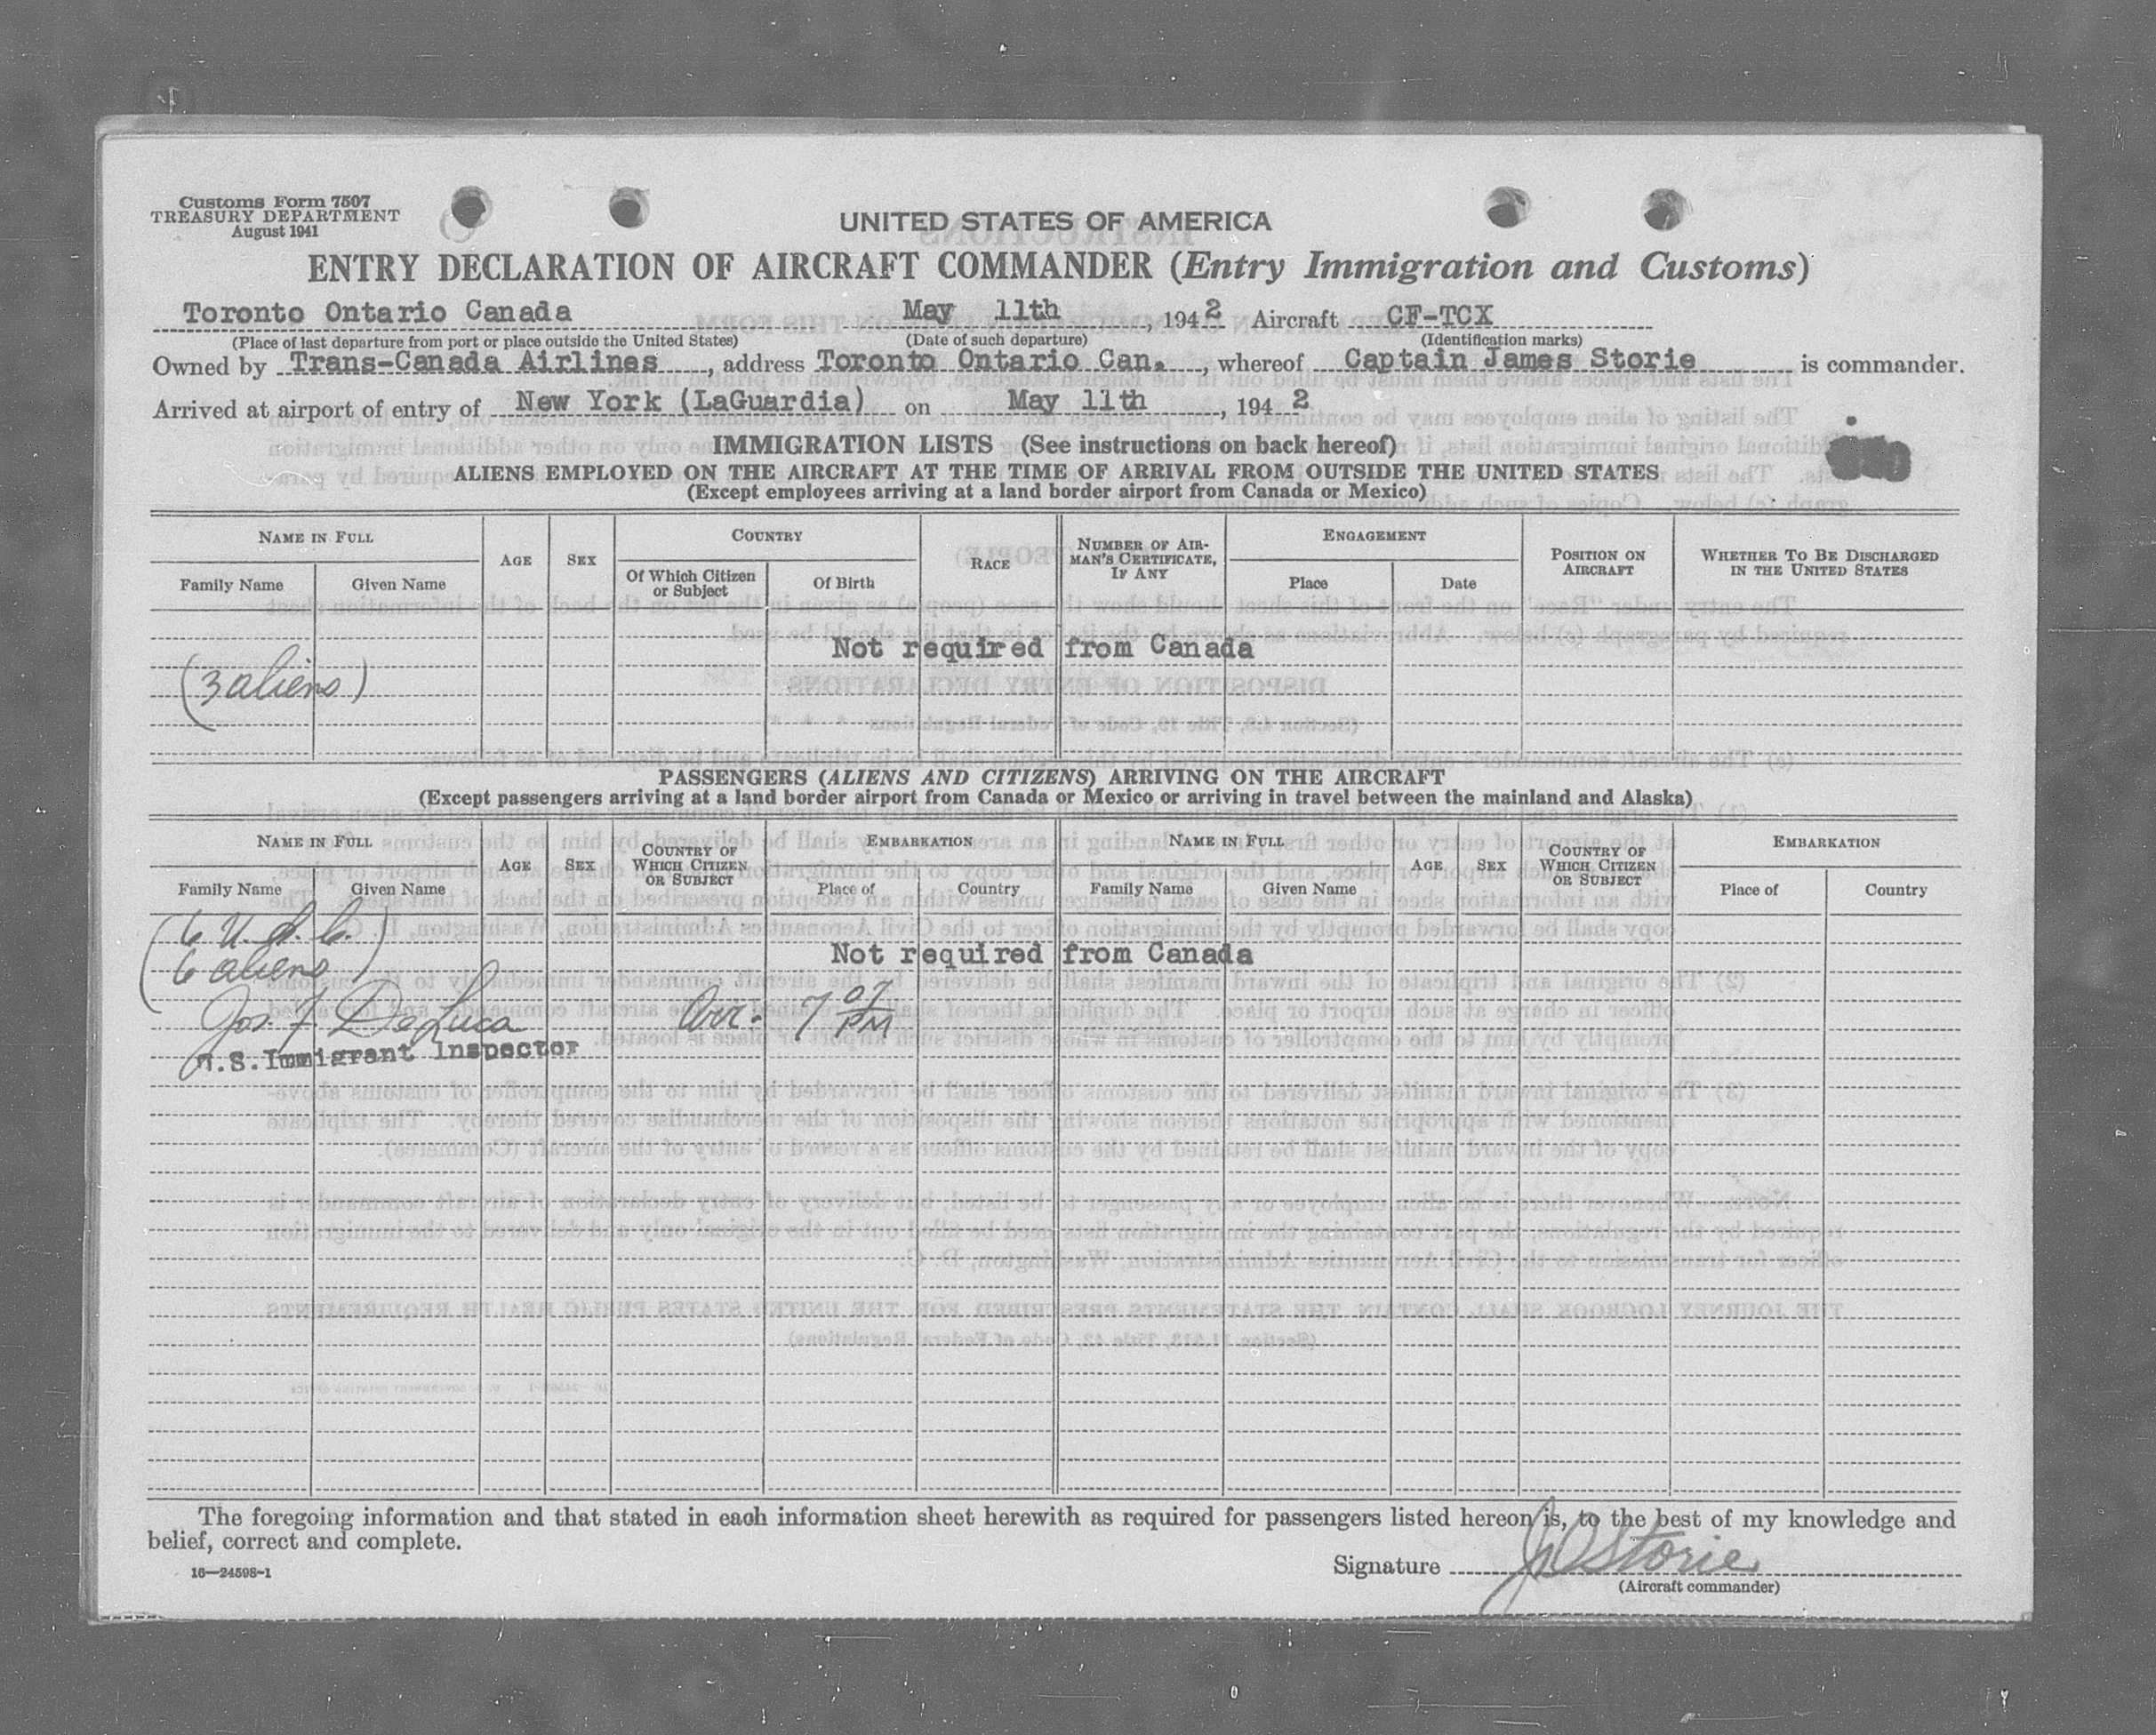 Customs Form 7507
TREASURY DEPARTMENT
August 1941
UNITED STATES OF AMERICA
ENTRY DECLARATION OF AIRCRAFT COMMANDER (Entry Immigration and Customs)
Toronto Ontario Canada May 11th, 1942 Aircraft CF-TCX
(Place of last departure from port or place outside the United States) (Date of such departure) (Identification marks)
Owned by Trans-Canada Airlines, address Toronto Ontario Can., whereof Captain James Storie is commander.
Arrived at airport of entry of New York (LaGuardia) on May 11th, 1942
IMMIGRATION LISTS (See instructions on back hereof)
ALIENS EMPLOYED ON THE AIRCRAFT AT THE TIME OF ARRIVAL FROM OUTSIDE THE UNITED STATES
(Except employees arriving at a land border airport from Canada or Mexico)
NAME IN FULL AGE SEX COUNTRY RACE NUMBER OF AIRMAN'S CERTIFICATE, IF ANY ENGAGEMENT POSITION ON AIRCRAFT WHETHER TO BE DISCHARGED IN THE UNITED STATES
Family Name Given Name Of Which Citizen or Subject Of Birth Place Date
Not required from Canada
(3 aliens)
PASSENGERS (ALIENS AND CITIZENS) ARRIVING ON THE AIRCRAFT
(Except passengers arriving at a land border airport from Canada or Mexico or arriving in travel between the mainland and Alaska)
NAME IN FULL AGE SEX COUNTRY OF WHICH CITIZEN OR SUBJECT EMBARKATION NAME IN FULL AGE SEX COUNTRY OF WHICH CITIZEN OR SUBJECT EMBARKATION
Family Name Given Name Place of Country Family Name Given Name Place of Country
(6 U.S.C.)
Not required from Canada
6 aliens
Jos. F. DeLuca Arr. 7 07 PM
U.S. Immigrant Inspector
The foregoing information and that stated in each information sheet herewith as required for passengers listed hereon is, to the best of my knowledge and
belief, correct and complete.
Signature J Storie
16—24598-1
(Aircraft commander)